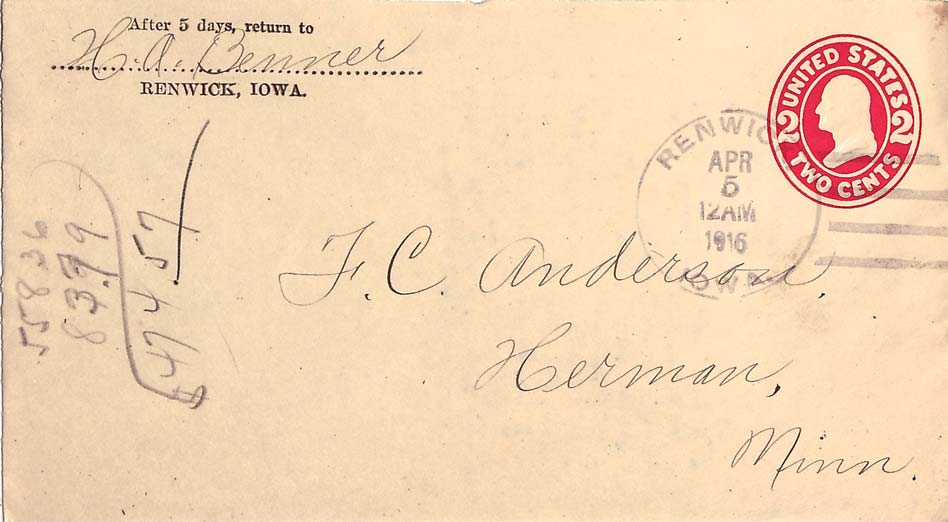 After 5 days, return to
H. A. Benner
RENWICK, IOWA.
UNITED STATES
2 2
TWO CENTS
RENWICK
APR
5
12AM
1916
IOWA
F. C. Anderson,
Herman,
Minn.
558 36
83.79
$474 57